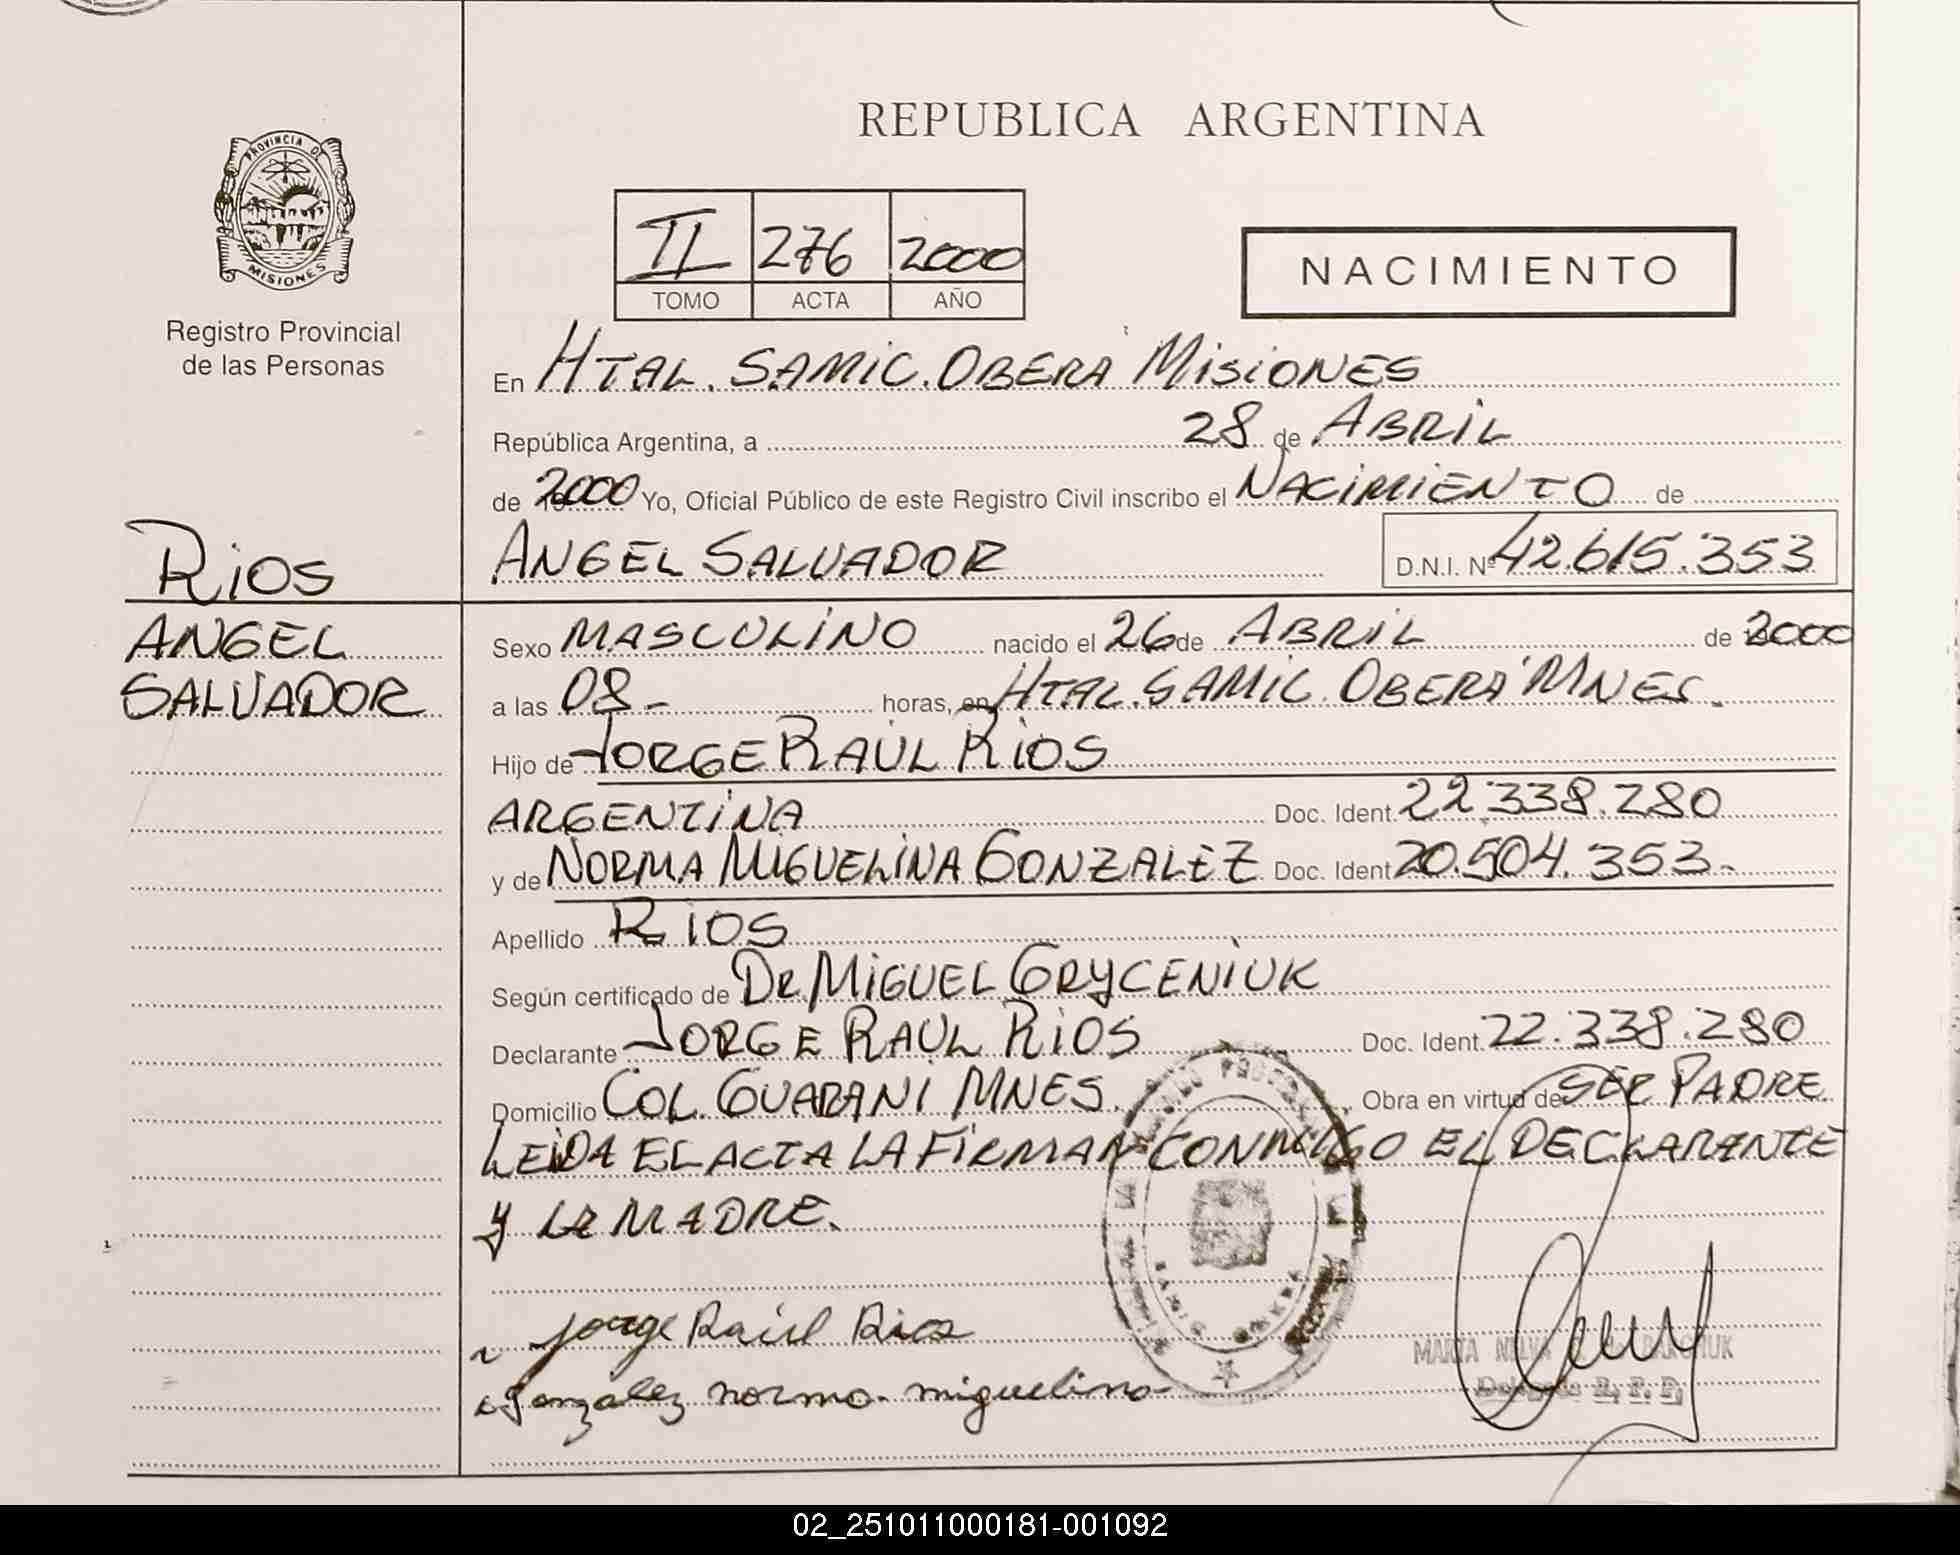 REPUBLICA ARGENTINA
PROVINCIA DE
MISIONES
Registro Provincial
de las Personas
II 276 2000
TOMO ACTA AÑO
NACIMIENTO
En HTAL. SAMIC. OBERA' MISIONES
República Argentina, a 28 de ABRIL
de 2000 Yo, Oficial Público de este Registro Civil inscribo el NACIMIENTO de
RIOS
ANGEL SALVADOR D.N.I. Nº 42.615.353
ANGEL
SALVADOR
Sexo MASCULINO nacido el 26 de ABRIL de 2000
a las 08 - horas, en HTAL. SAMIC. OBERA' MNES.
Hijo de JORGE RAUL RIOS
ARGENTINA Doc. Ident. 22.338.280
y de NORMA MIGUELINA GONZALEZ Doc. Ident 20.504.353.-
Apellido RIOS
Según certificado de DR. MIGUEL GRYCENIUK
Declarante JORGE RAUL RIOS Doc. Ident. 22.338.280
Domicilio COL. GUARANI MNES. Obra en virtud de SER PADRE
LEIDA EL ACTA LA FIRMAN CONMIGO EL DECLARANTE
y LA MADRE.
Jorge Raúl Rios
Gonzalez norma miguelina
MARTA
02_251011000181-001092